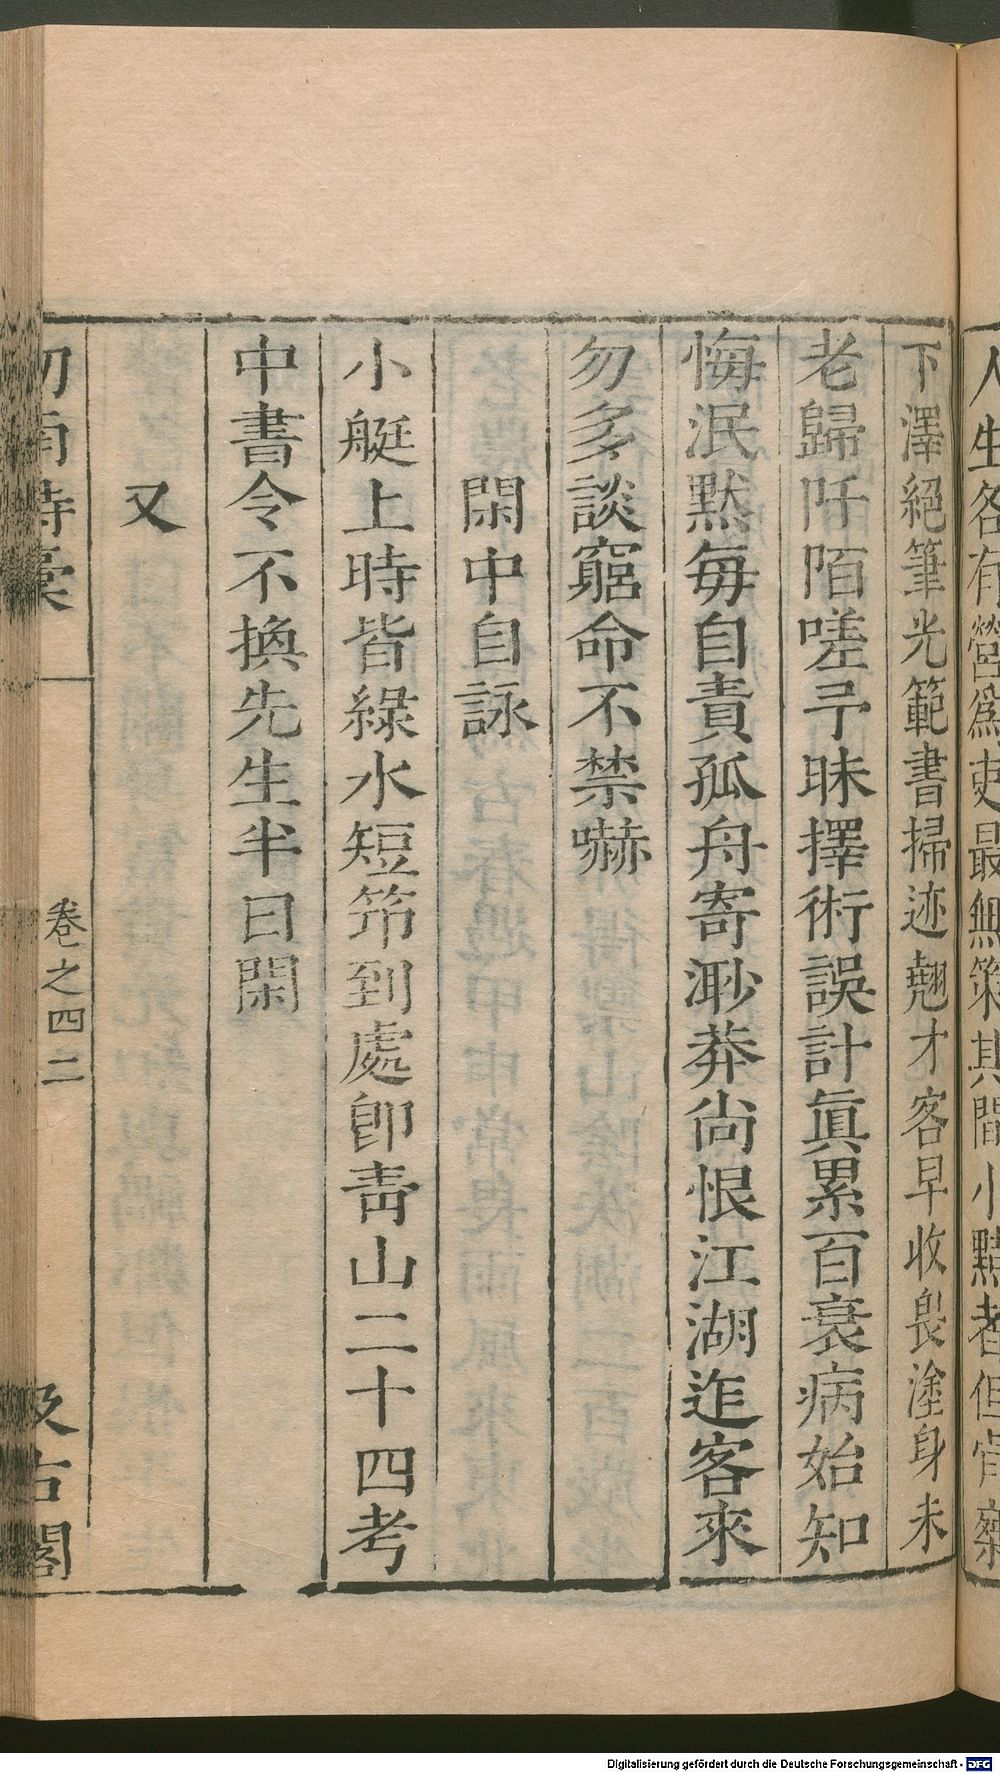 人生各有營爲吏最無策其間小黠者但肯
下澤絕筆光範書掃迹翹才客早收曳塗身未
老歸阡陌嗟予昧擇術誤計眞累百衰病始知
悔泯默每自責孤舟寄渺莽尚恨江湖迮客來
勿多談窮命不禁嚇
閑中自詠
小艇上時皆綠水短笻到處卽靑山二十四考
中書令不換先生半日閑
又
劒南詩稾
卷之四二
汲古閣
Digitalisierung gefördert durch die Deutsche Forschungsgemeinschaft - DFG